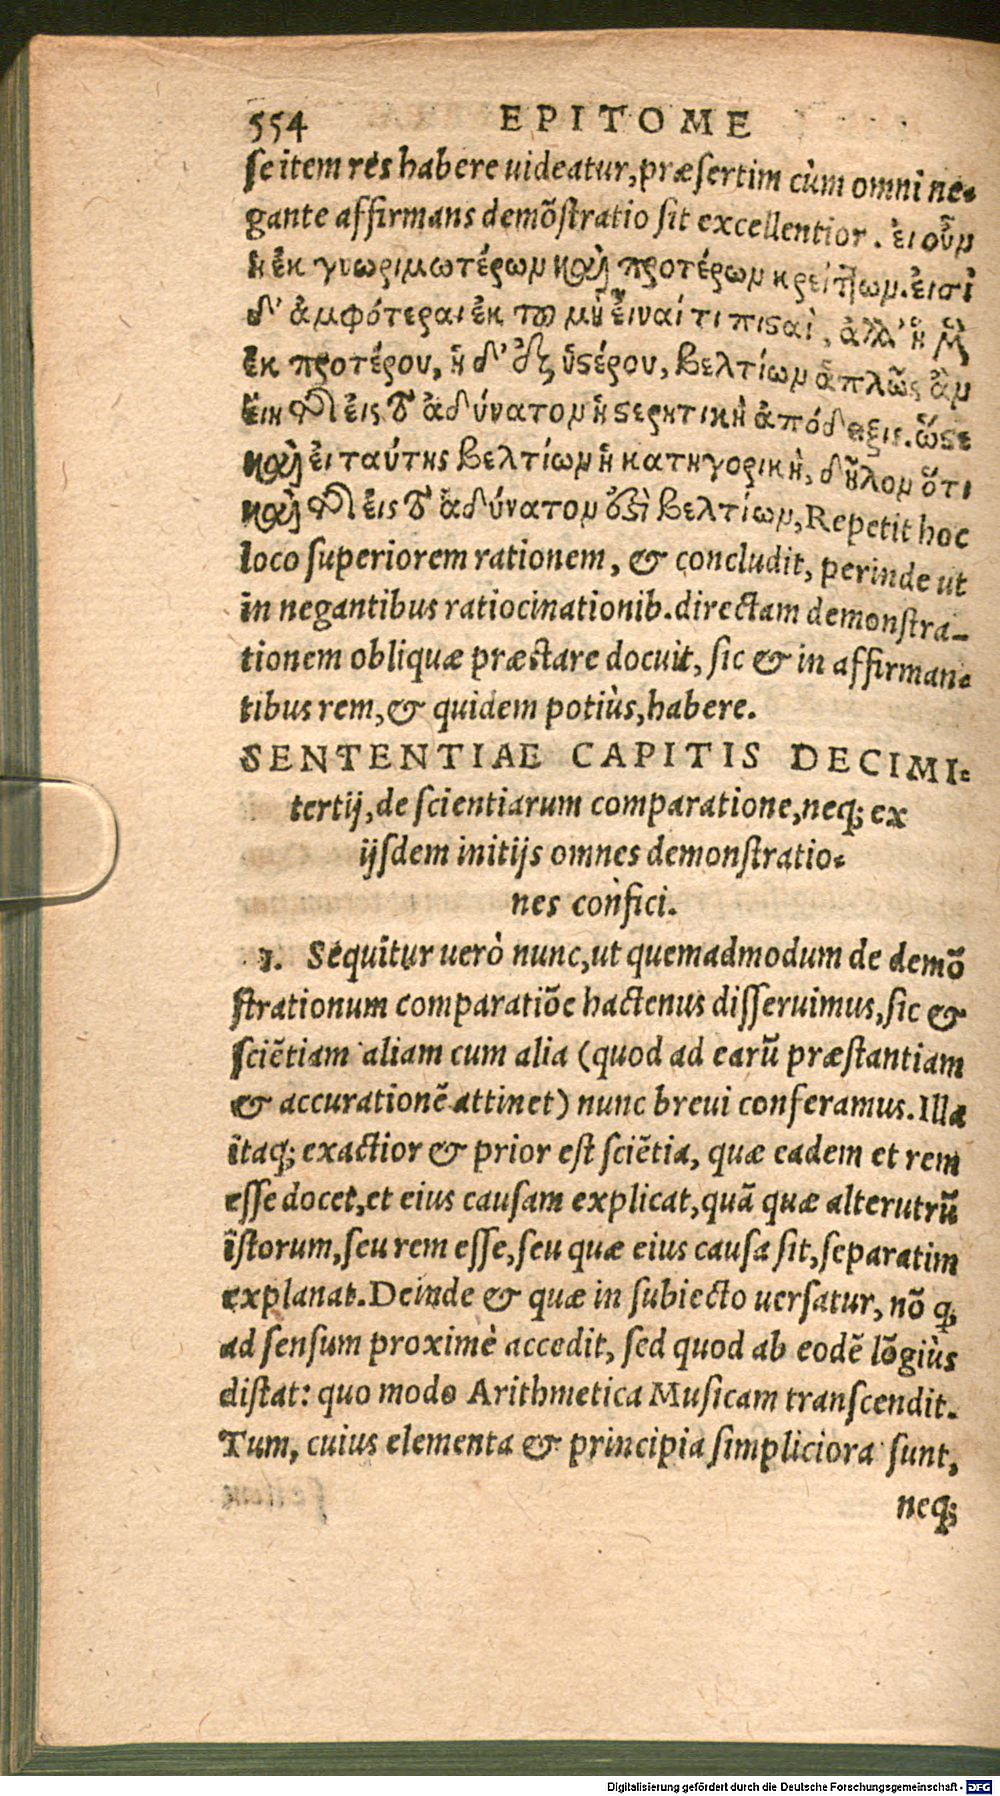 554 EPITOME
se item res habere uideatur, præsertim cùm omni ne-
gante affirmans demõstratio sit excellentior. ἐι οὖν
ἡ ἐκ γνωριμωτέρων καὶ προτέρων κρείττων. ἐισὶ
δ' ἀμφότεραι ἐκ τοῦ μὴ ἐιναί τι πισαὶ, ἀλλ' ἡ μὲν
ἐκ προτέρου, ἡ δ' ἐξ ὑςέρου, βελτίων ἁπλῶς ἂν
ἔιη τῆς ἐις τὸ ἀδύνατον ἡ ςερητικὴ ἀπόδειξις. ὥςε
καὶ ἐι ταύτης βελτίων ἡ κατηγορικὴ, δῆλον ὅτι
καὶ τῆς ἐις τὸ ἀδύνατον ἐςὶ βελτίων, Repetit hoc
loco superiorem rationem, & concludit, perinde ut
in negantibus ratiocinationib. directam demonstra-
tionem obliquæ præstare docuit, sic & in affirman-
tibus rem, & quidem potiùs, habere.
SENTENTIAE CAPITIS DECIMI-
tertij, de scientiarum comparatione, neq; ex
ijsdem initijs omnes demonstratio-
nes confici.
1. Sequitur uerò nunc, ut quemadmodum de demõ
strationum comparatiõe hactenus disseruimus, sic &
sciẽtiam aliam cum alia (quod ad earũ præstantiam
& accurationẽ attinet) nunc breui conferamus. Illa
itaq; exactior & prior est sciẽtia, quæ eadem et rem
esse docet, et eius causam explicat, quã quæ alterutrũ
istorum, seu rem esse, seu quæ eius causa sit, separatim
explanat. Deinde & quæ in subiecto uersatur, nõ q;
ad sensum proximè accedit, sed quod ab eodẽ lõgiùs
distat: quo modo Arithmetica Musicam transcendit.
Tum, cuius elementa & principia simpliciora sunt,
neq;
Digitalisierung gefördert durch die Deutsche Forschungsgemeinschaft - DFG